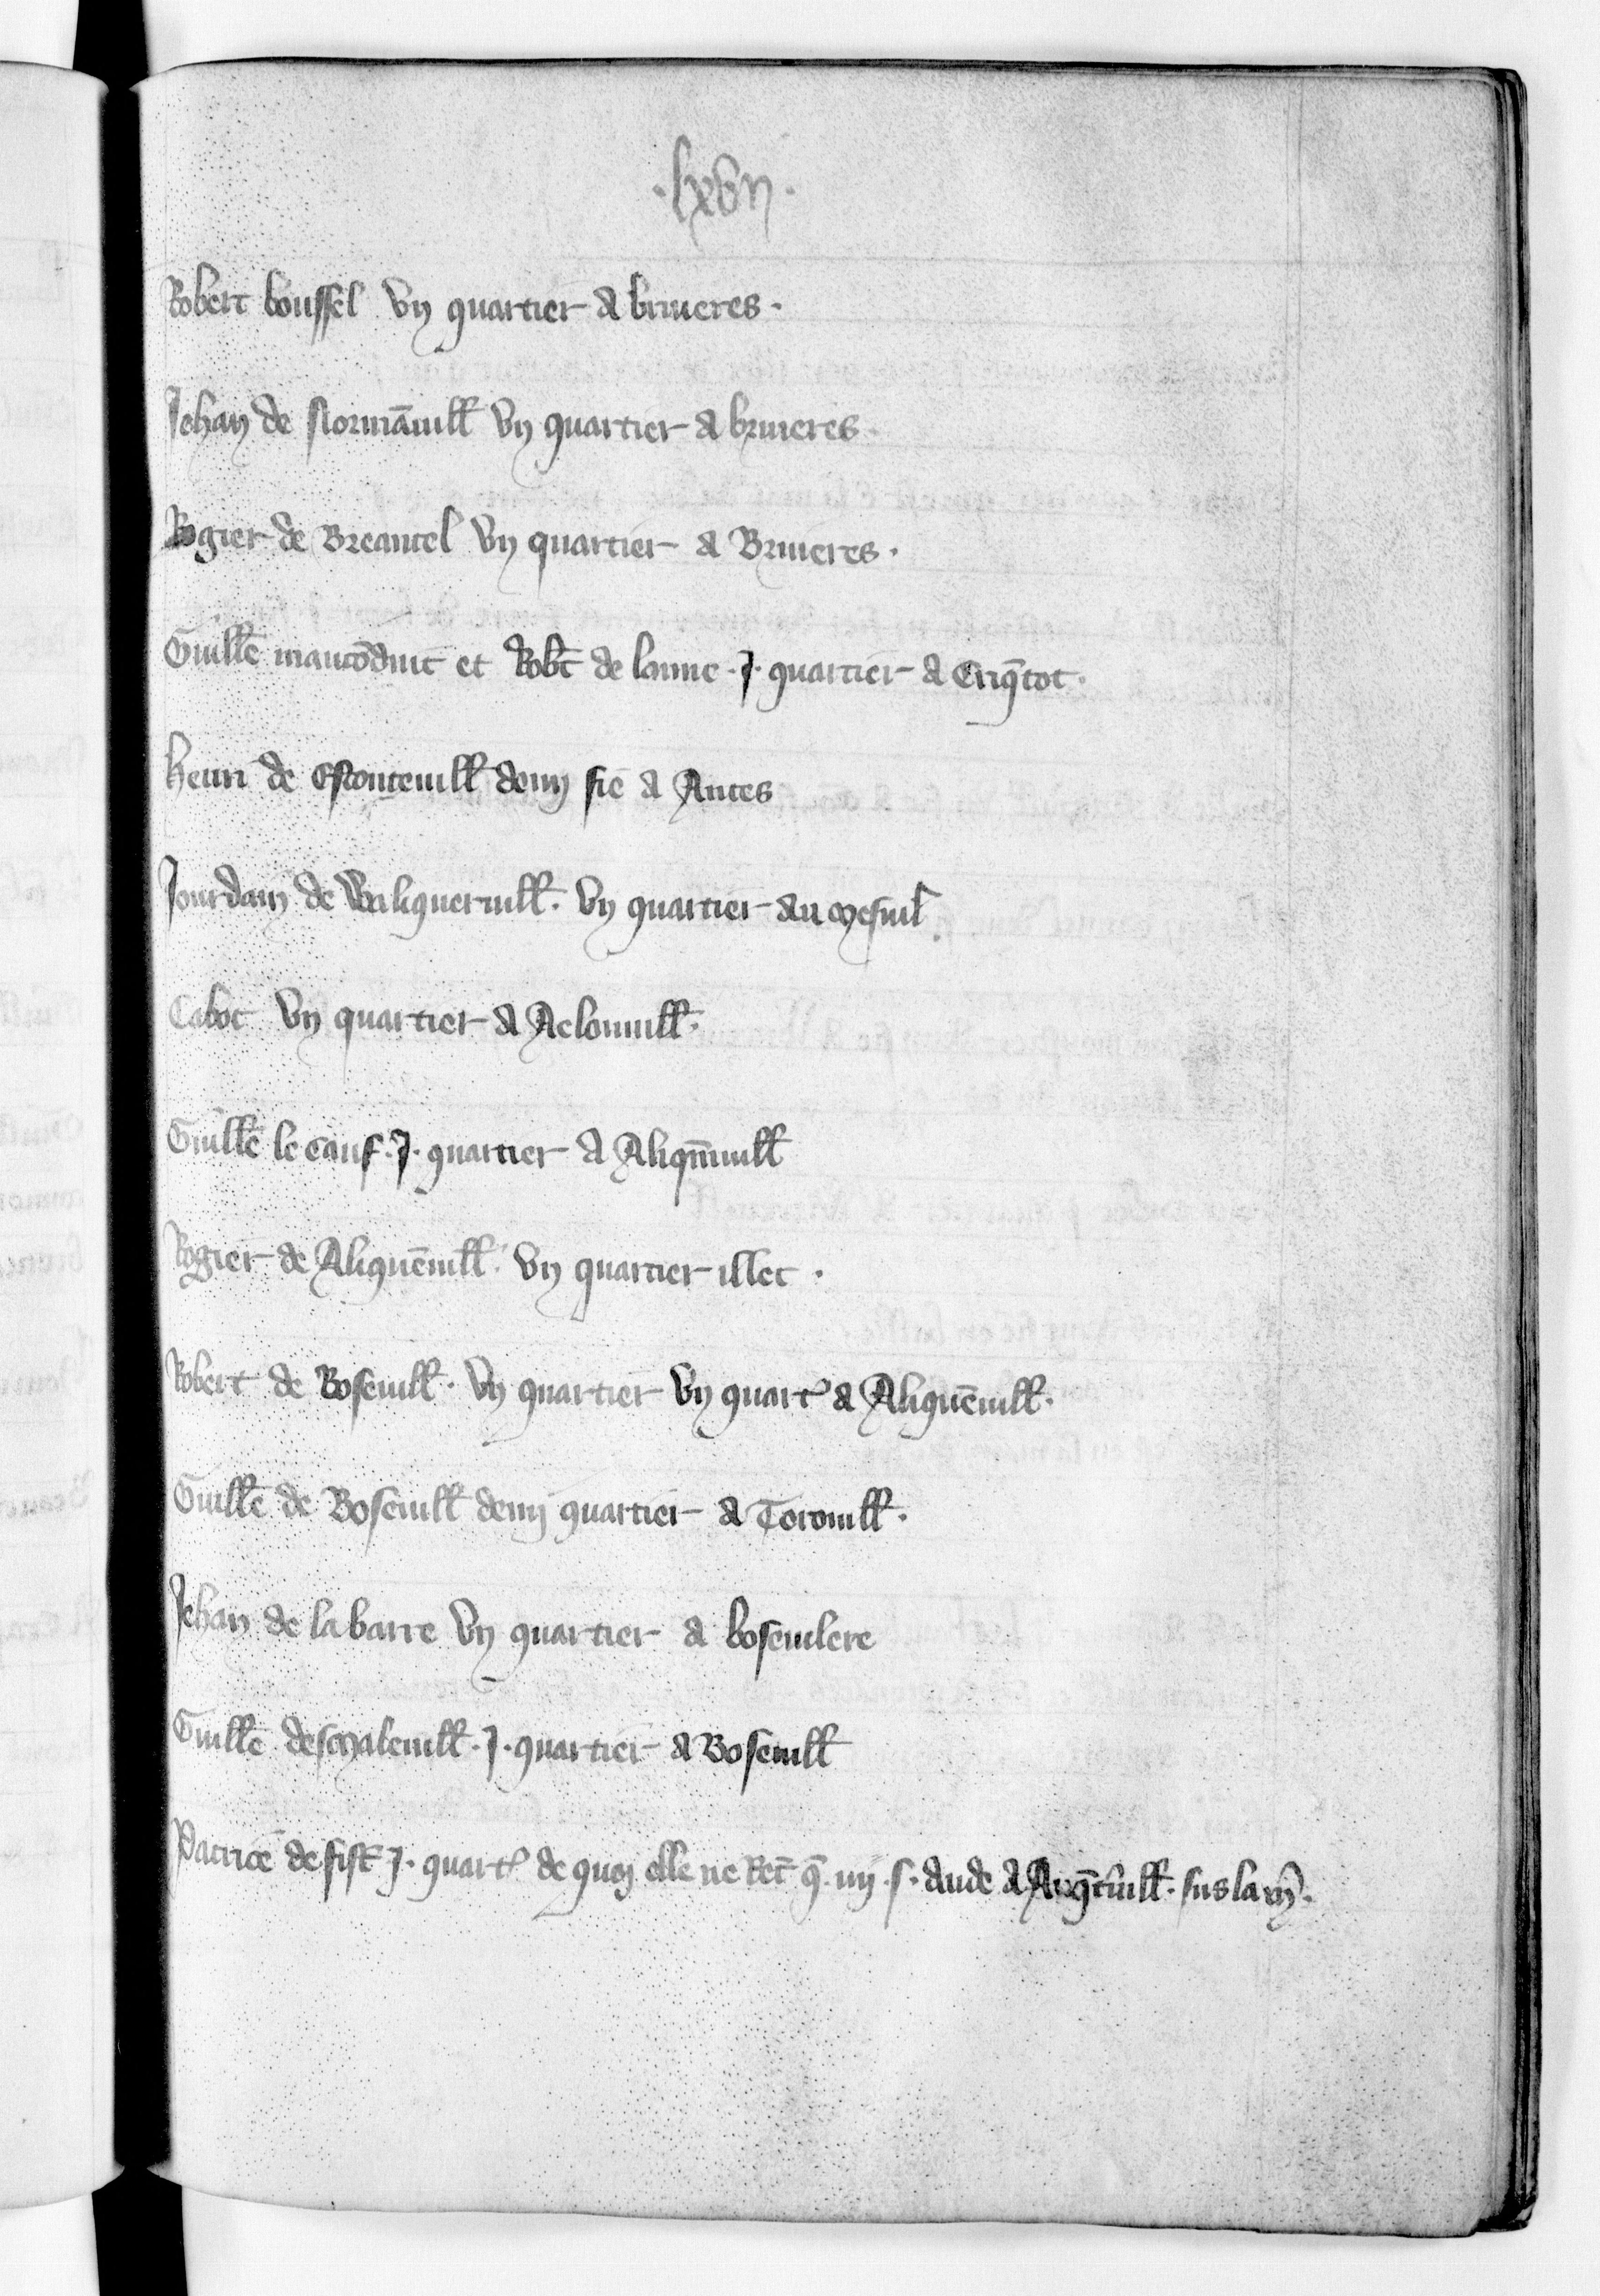 .lxvii.
Robert boussel vn quartier a brueres.
Jehan de Normāuill' vn quartier a brueres.
Rogier de Breautel vn quartier a Brueres.
Guill'e maucōduit et Rob't de laune .J. quartier a Criq̄tot.
henri de Estouteuill' demy fie a Autes
Jourdain de Waliqueruill'. vn quartier au mesnil.
Cabot vn quartier a Aclouuill'.
Guill'e le cauf .J. quartier a Aliqm̄uill'
Rogier de Aliquēuill'. vn quartier illec.
Robert de Boseuill'. vn quartier vn quart' a Aliquēuill'.
Guill'e de Boseuill' demy quartier a Torouill'.
Jehan de la barre vn quartier a boseuilere
Guill'e desmaleuill' .J. quartier a Boseuill'
Patrice de fist' J. quart' de quoy elle ne ret q̄ .iiij. s. dude a Arq̄tuill'. sus la